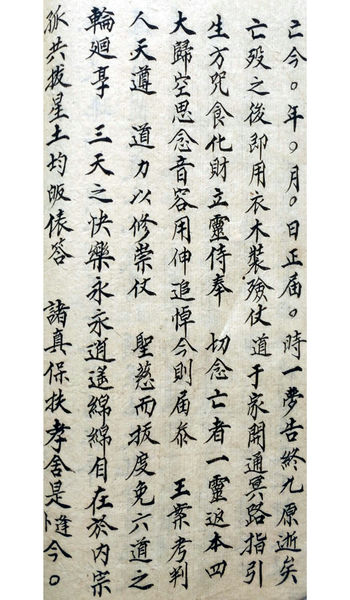 亡今〇年〇月〇日正届〇時一夢告終九原逝矣
亡殁之後即用衣木裝殮仗 道于家開通冥路指引
生方咒食化財立靈侍奉 切念亡者一靈返本四
大歸空思念音容用伸追悼今則届泰 王案考判
人天遵 道力以修崇仗 聖慈而拔度免六道之
輪廻亭 三天之快樂永永逍遥綿綿自在於内宗
孤共拔星土均皈俵答 諸真保扶孝舍是卜逢今〇